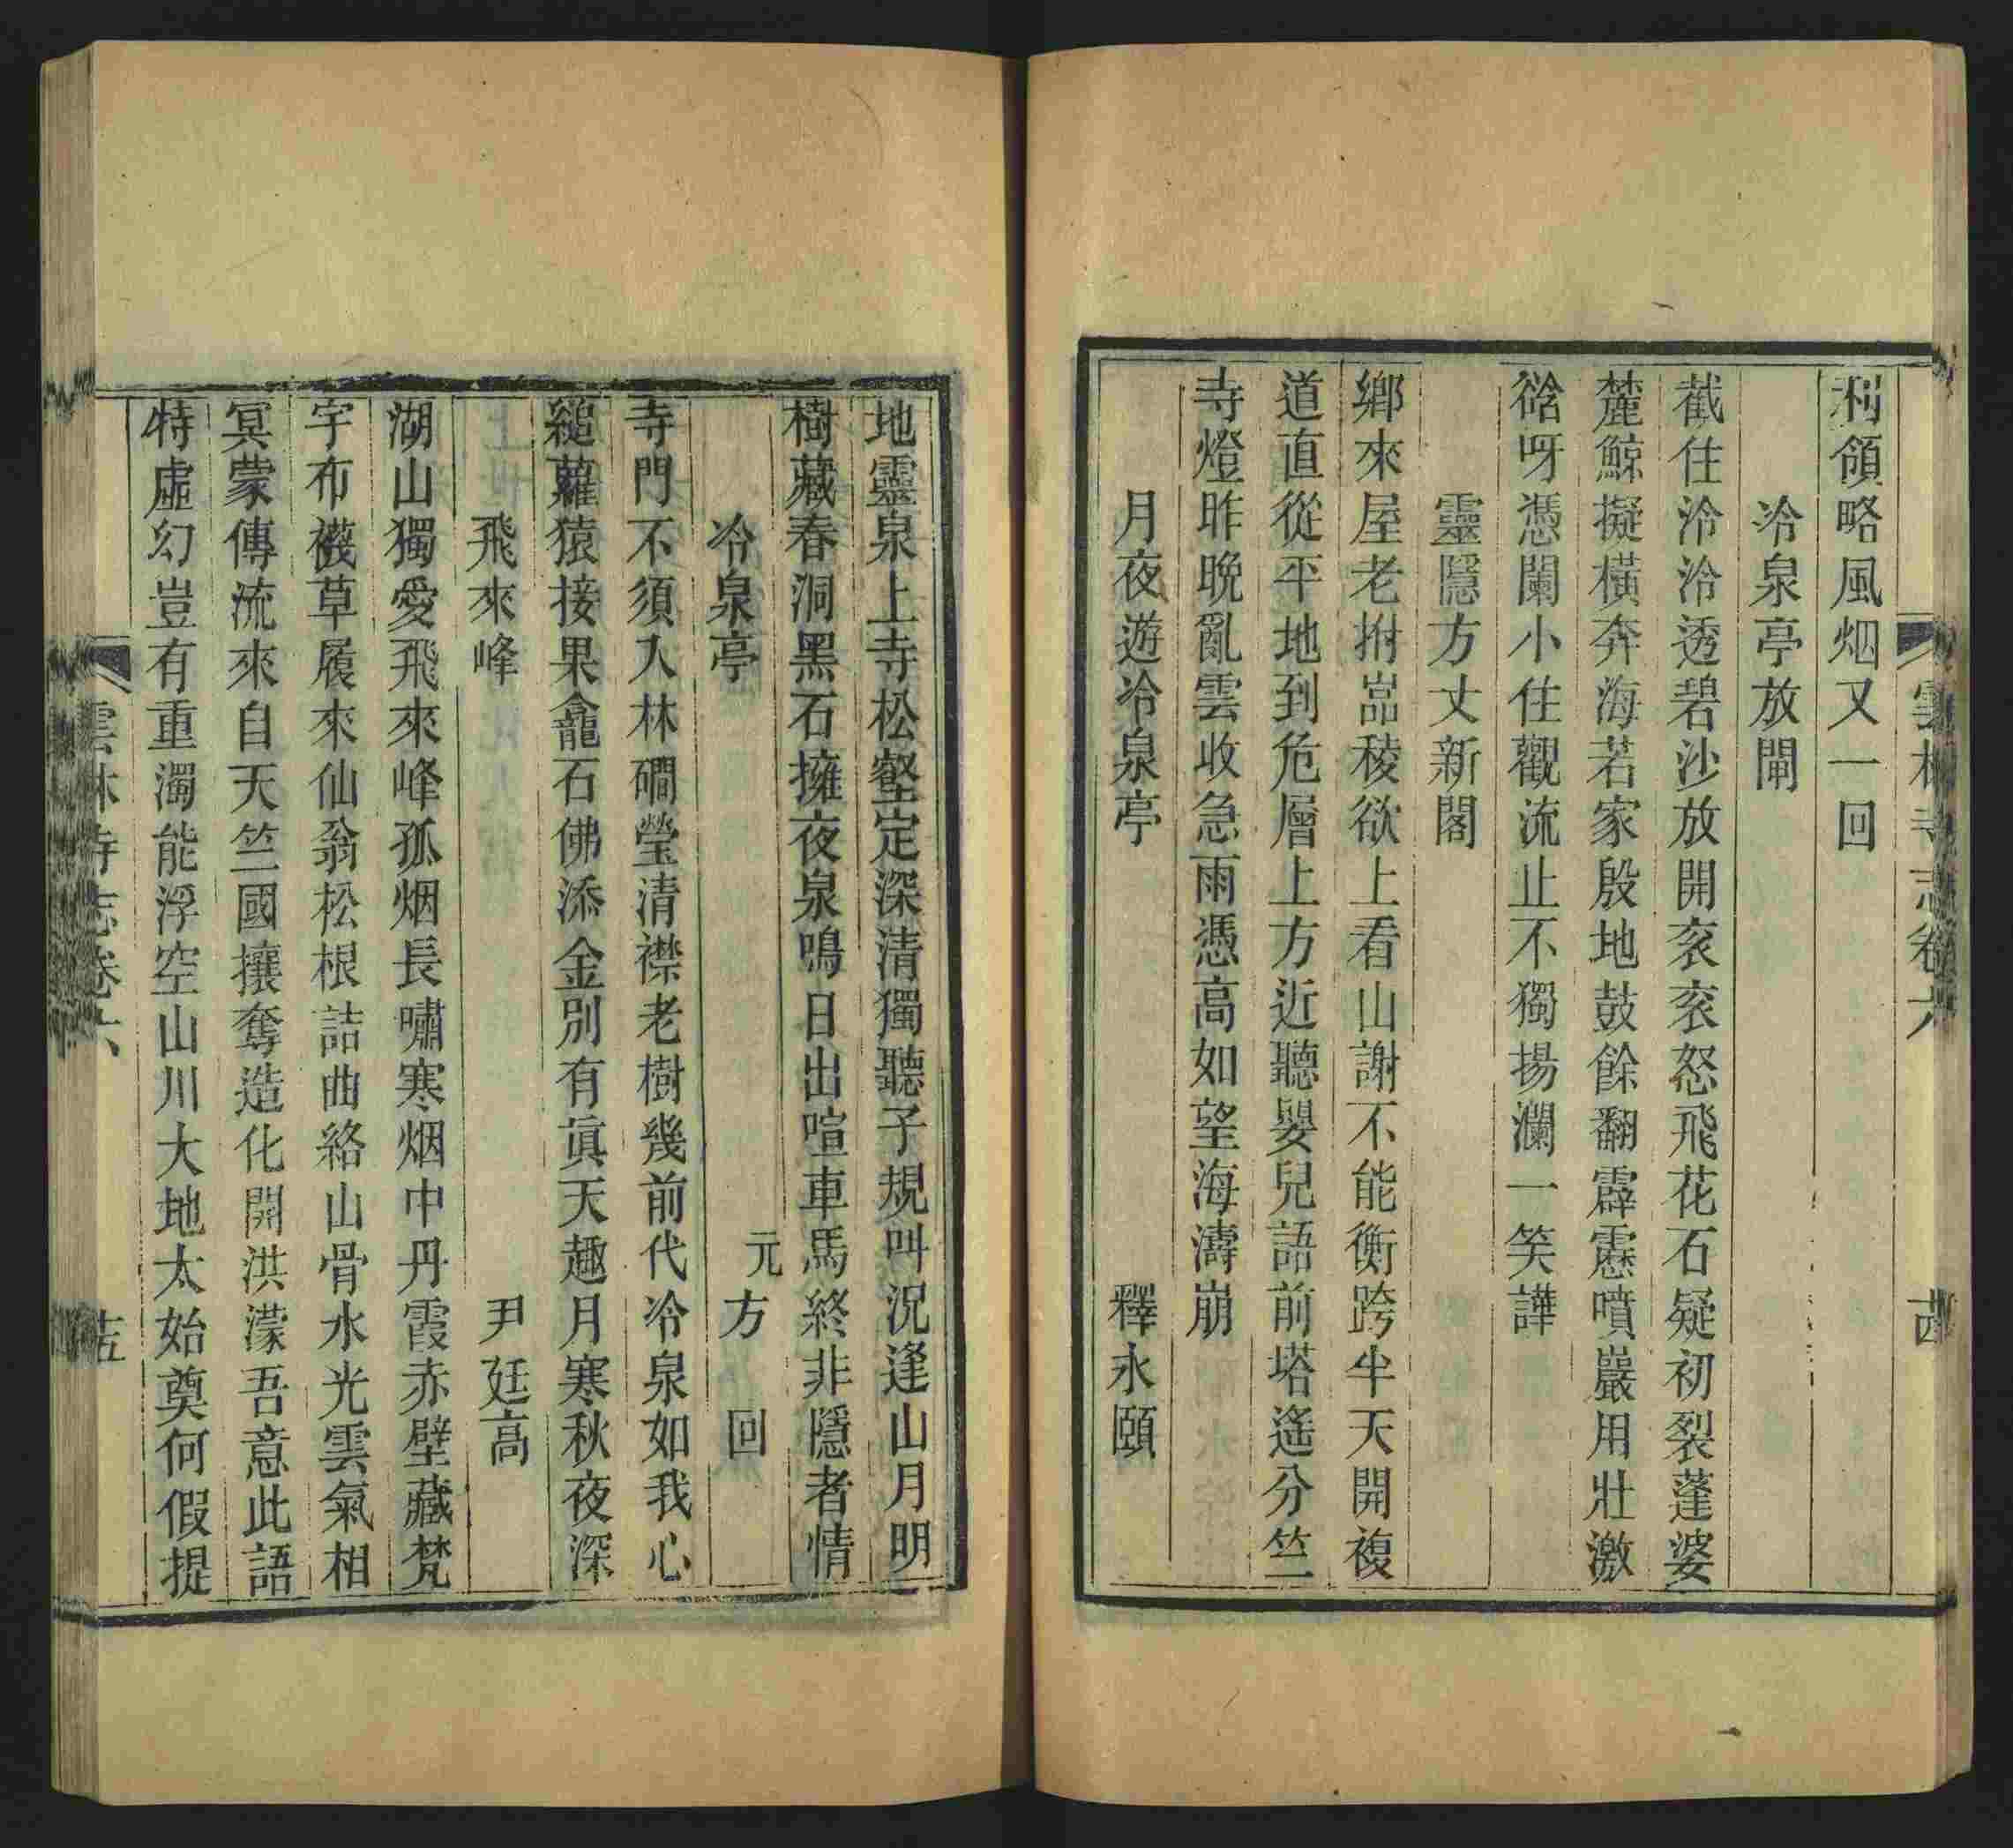 雲林寺志卷六
利領略風烟又一回
冷泉亭放閘
截住泠泠透碧沙放開衮衮怒飛花石疑初裂蓬婆
麓鯨擬橫奔海若家殷地鼓餘翻霹靂噴巖用壯激
谽呀憑闌小住觀流止不獨揚瀾一笑譁
靈隱方丈新閣
鄉來屋老拊嵓稜欲上看山謝不能衡跨半天開複
道直從平地到危層上方近聽嬰兒語前塔遙分竺
寺燈昨晚亂雲收急雨憑高如望海濤崩
月夜遊冷泉亭 釋永頤
地靈泉上寺松壑定深清獨聽子規叫況逢山月明
樹藏春洞黑石擁夜泉鳴日出喧車馬終非隱者情
冷泉亭 元方 回
寺門不須入林磵瑩清襟老樹幾前代冷泉如我心
縋蘿猿接果龕石佛添金別有眞天趣月寒秋夜深
飛來峰 尹廷高
湖山獨愛飛來峰孤烟長嘯寒烟中丹霞赤壁藏梵
宇布襪草履來仙翁松根詰曲絡山骨水光雲氣相
冥蒙傳流來自天竺國攘奪造化開洪濛吾意此語
特虛幻豈有重濁能浮空山川大地太始奠何假提
雲林寺志卷六